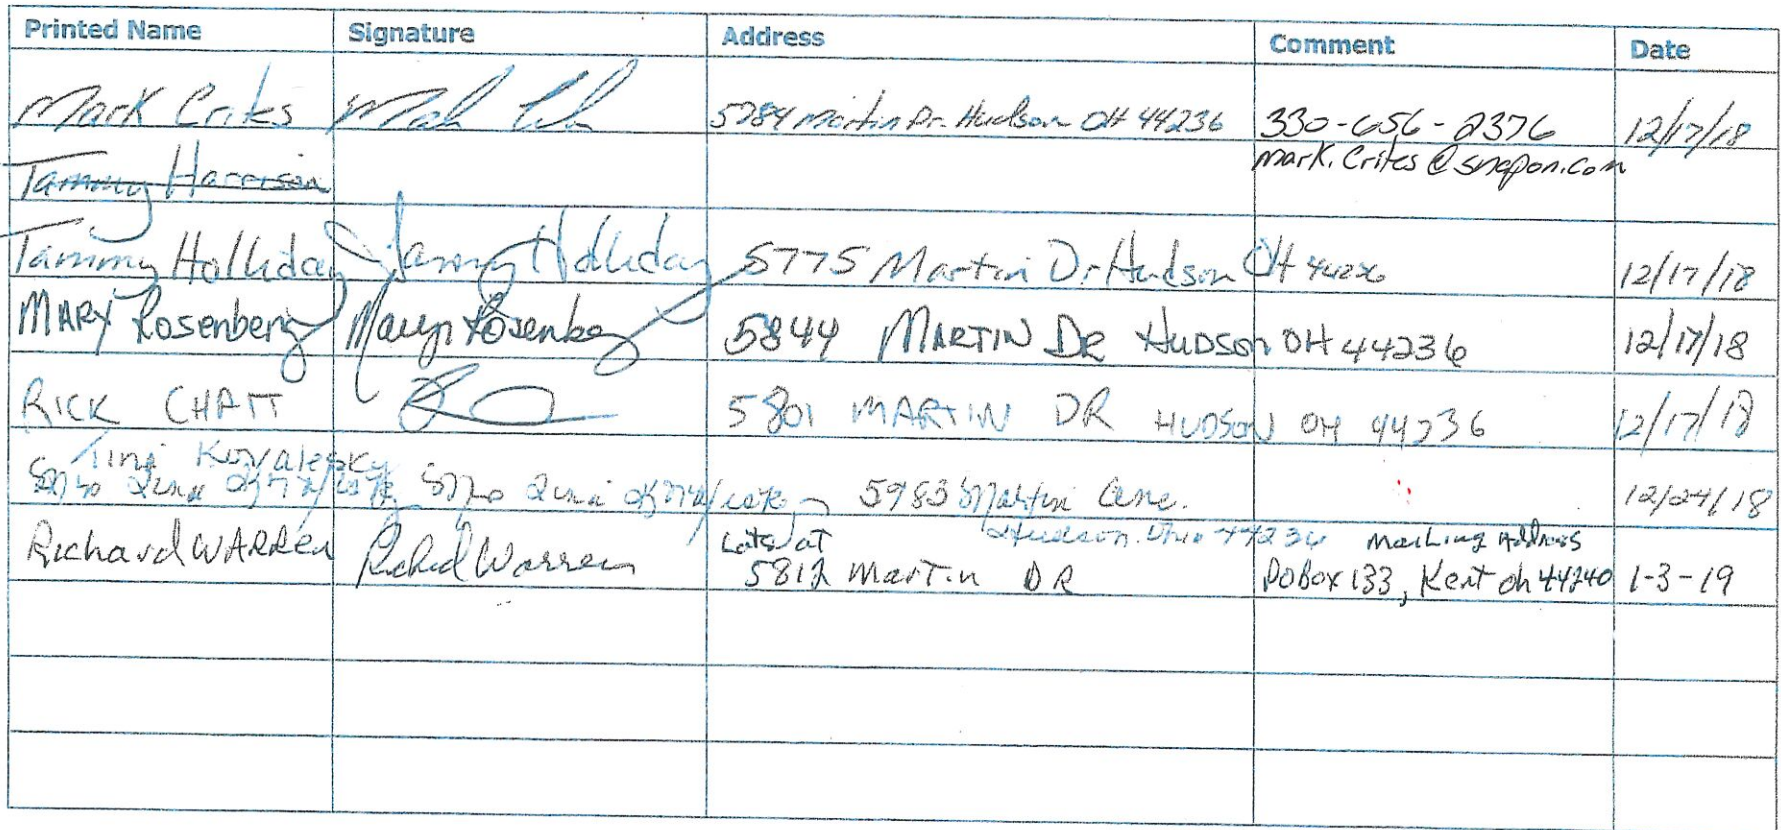 Printed Name Signature Address Comment Date
Mark Crites 5784 Martin Dr. Hudson OH 44236 330-656-2376 12/17/18
mark.crites@snapon.com
Tammy Harrison
Tammy Holliday Tammy Holliday 5775 Martin Dr Hudson OH 12/17/18
MARY Rosenberg Rosenberg 5844 MARTIN DR HUDSON OH 44236 12/17/18
RICK CHATT 5801 MARTIN DR HUDSON OH 44236 12/17/18
Tina Kovalesky
5983 Martin 12/24/18
Hudson. Ohio 44236
Richard WARREN Richard Warren Lots at Mailing Address
5812 Martin DR PO Box 133, Kent oh 44240 1-3-19